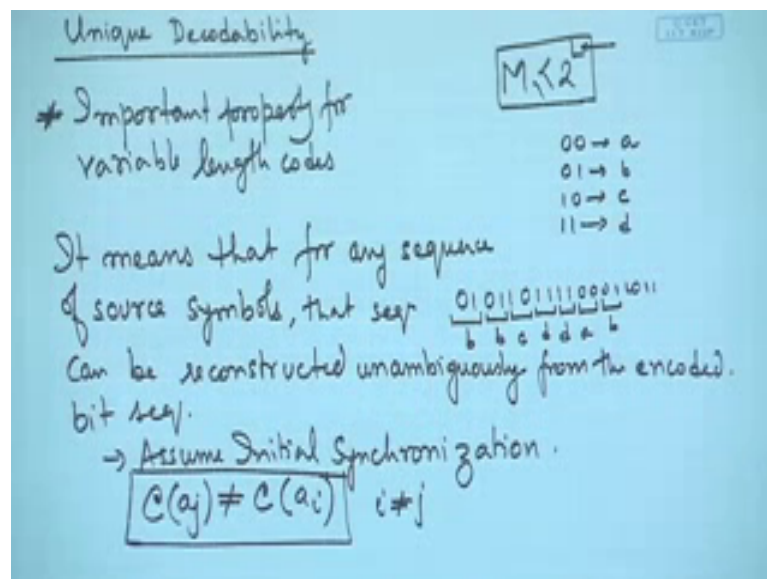 Unique Decodability
M ≤ 2^L
* Important property for
variable length codes
00 → a
01 → b
10 → c
11 → d
It means that for any sequence
of source symbols, that seq
010110111100011011
b b c d d a b
Can be reconstructed unambiguously from the encoded.
bit seq.
→ Assume Initial Synchronization.
C(aj) ≠ C(ai) i ≠ j